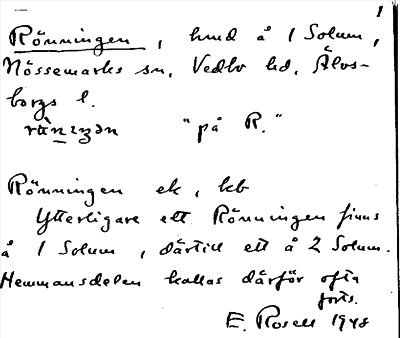 1
Rönningen, hmd å 1 Solum,
Nössemarks sn, Vedbo hd, Älvs-
borgs l.
"på R."
Rönningen ek, kb
Ytterligare ett Rönningen finns
å 1 Solum, därtill ett å 2 Solum.
Hemmansdelen kallas därför ofta
forts.
E. Rosell 1948